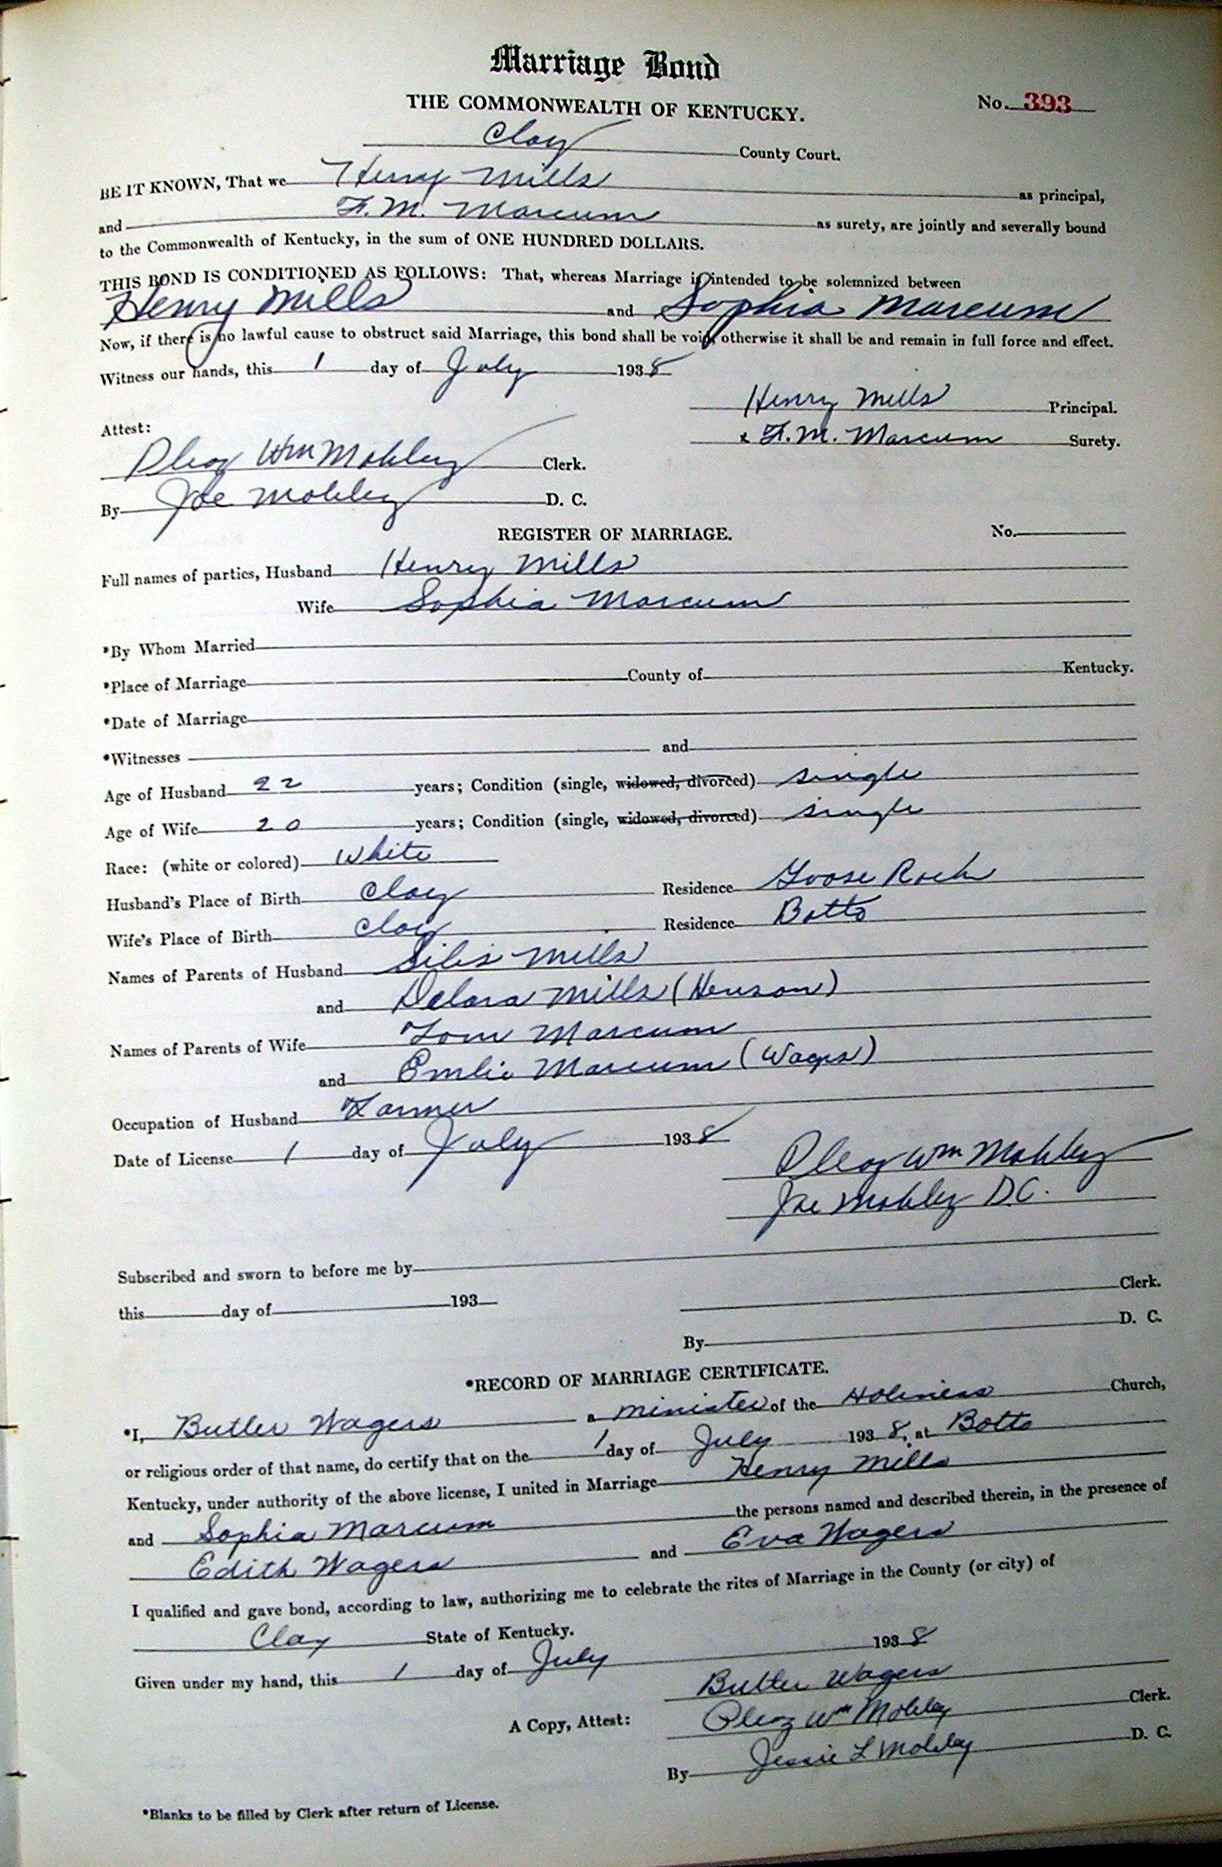 Marriage Bond
THE COMMONWEALTH OF KENTUCKY.
No. 393
Clay County Court.
BE IT KNOWN, That we Henry Mills as principal,
and F. M. Marcum as surety, are jointly and severally bound
to the Commonwealth of Kentucky, in the sum of ONE HUNDRED DOLLARS.
THIS BOND IS CONDITIONED AS FOLLOWS: That, whereas Marriage is intended to be solemnized between
Henry Mills and Sophia Marcum
Now, if there is no lawful cause to obstruct said Marriage, this bond shall be void, otherwise it shall be and remain in full force and effect.
Witness our hands, this 1 day of July 1938
Henry Mills Principal.
x F. M. Marcum Surety.
Attest:
Pleaz Wm Mobley Clerk.
By Joe Mobley D. C.
REGISTER OF MARRIAGE. No.
Full names of parties, Husband Henry Mills
Wife Sophia Marcum
*By Whom Married
*Place of Marriage County of Kentucky.
*Date of Marriage
*Witnesses and
Age of Husband 22 years; Condition (single, widowed, divorced) single
Age of Wife 20 years; Condition (single, widowed, divorced) single
Race: (white or colored) White
Husband's Place of Birth Clay Residence Goose Rock
Wife's Place of Birth Clay Residence Botto
Names of Parents of Husband Mills
and Delora Mills (Henson)
Names of Parents of Wife Tom Marcum
and Emlie Marcum (Wages)
Occupation of Husband Farmer
Date of License 1 day of July 1938
Pleaz Wm Mobley
Joe Mobley D.C.
Subscribed and sworn to before me by
this day of 193
Clerk.
By D. C.
*RECORD OF MARRIAGE CERTIFICATE.
*I, Butler Wagers a minister of the Holiness Church,
or religious order of that name, do certify that on the 1 day of July 1938, at Botto
Kentucky, under authority of the above license, I united in Marriage Henry Mills
and Sophia Marcum the persons named and described therein, in the presence of
Edith Wagers and Eva Wagers
I qualified and gave bond, according to law, authorizing me to celebrate the rites of Marriage in the County (or city) of
Clay State of Kentucky.
Given under my hand, this 1 day of July 1938
Butler Wagers
A Copy, Attest: Pleaz Wm Mobley Clerk.
By Jessie L Mobley D. C.
*Blanks to be filled by Clerk after return of License.